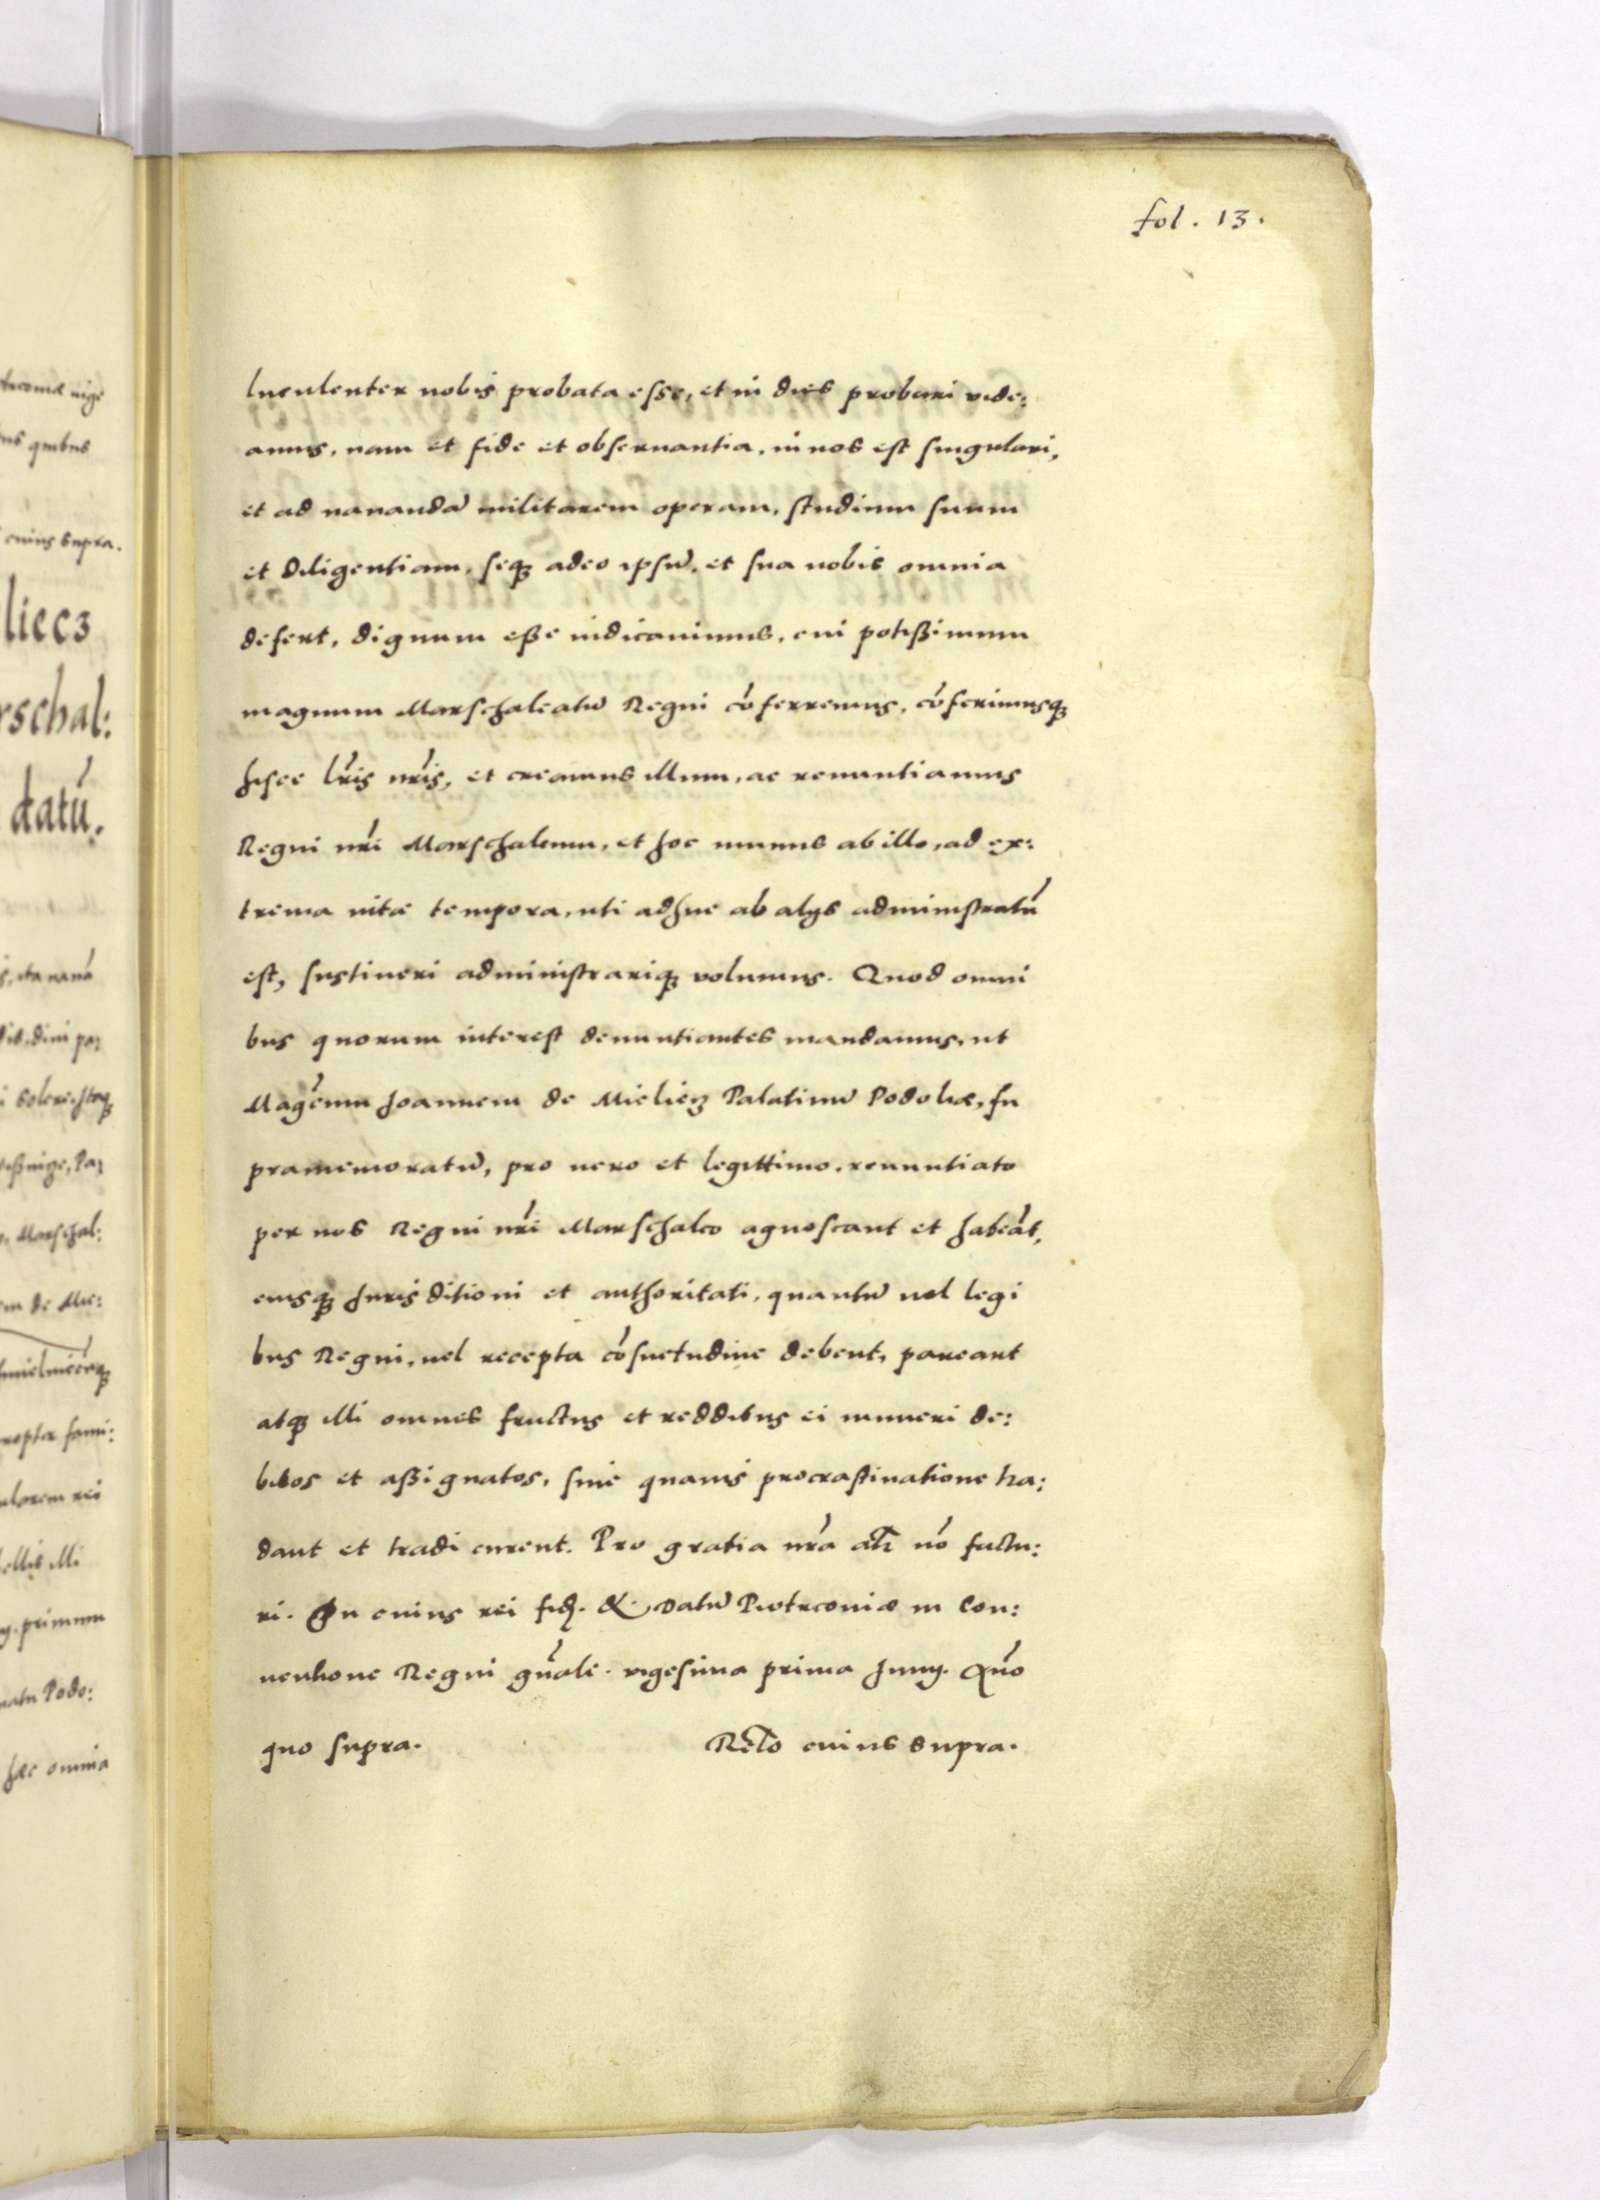 fol. 13.
luculenter nobis probata esse, et in dies probari vide:
amus, nam et fide et obseruantia, in nos est singulari,
et ad nauandā militarem operam, studium suum
et diligentiam, seqꝫ adeo ipsū, et sua nobis omnia
defert, dignum eße iudicauimus, cui potißimum
magnum Marschalcatū Regni cōferremus, cōferimusqꝫ
hisce lr̄is nr̄is, et creamus illum, ac renuntiamus
Regni nr̄i Marschalcum, et hoc munus ab illo, ad ex:
trema uitæ tempora, uti adhuc ab alÿs administratū
est, sustineri administrariqꝫ volumus. Quod omni
bus quorum interest denuntiantes mandamus, ut
Mag͞cum Joannem de Mieliecz Palatinū Podoliæ, su
pramemoratū, pro uero et legittimo, renuntiato
per nos Regni nr̄i Marschalco agnoscant et habeāt,
eiusqꝫ Jurisditioni et authoritati, quantū uel legi
bus Regni, uel recepta cōsuetudine debent, pareant
atqꝫ illi omnes fructus et redditus ei muneri de:
bitos et aßignatos, sine quauis procrastinatione tra:
dant et tradi curent. Pro gratia nr̄a alr̄ nō factu:
ri. In cuius rei fid. &. Datū Piotrconiæ in Con:
uentione Regni gn̄ali. vigesima prima Junÿ. An̄o
quo supra.
Rel͞o cuius supra.
tus quibus
cuius supra.
liecz
rschal:
datū.
Marschal:
em de Mie:
illi
primum
Podo:
hæc omnia